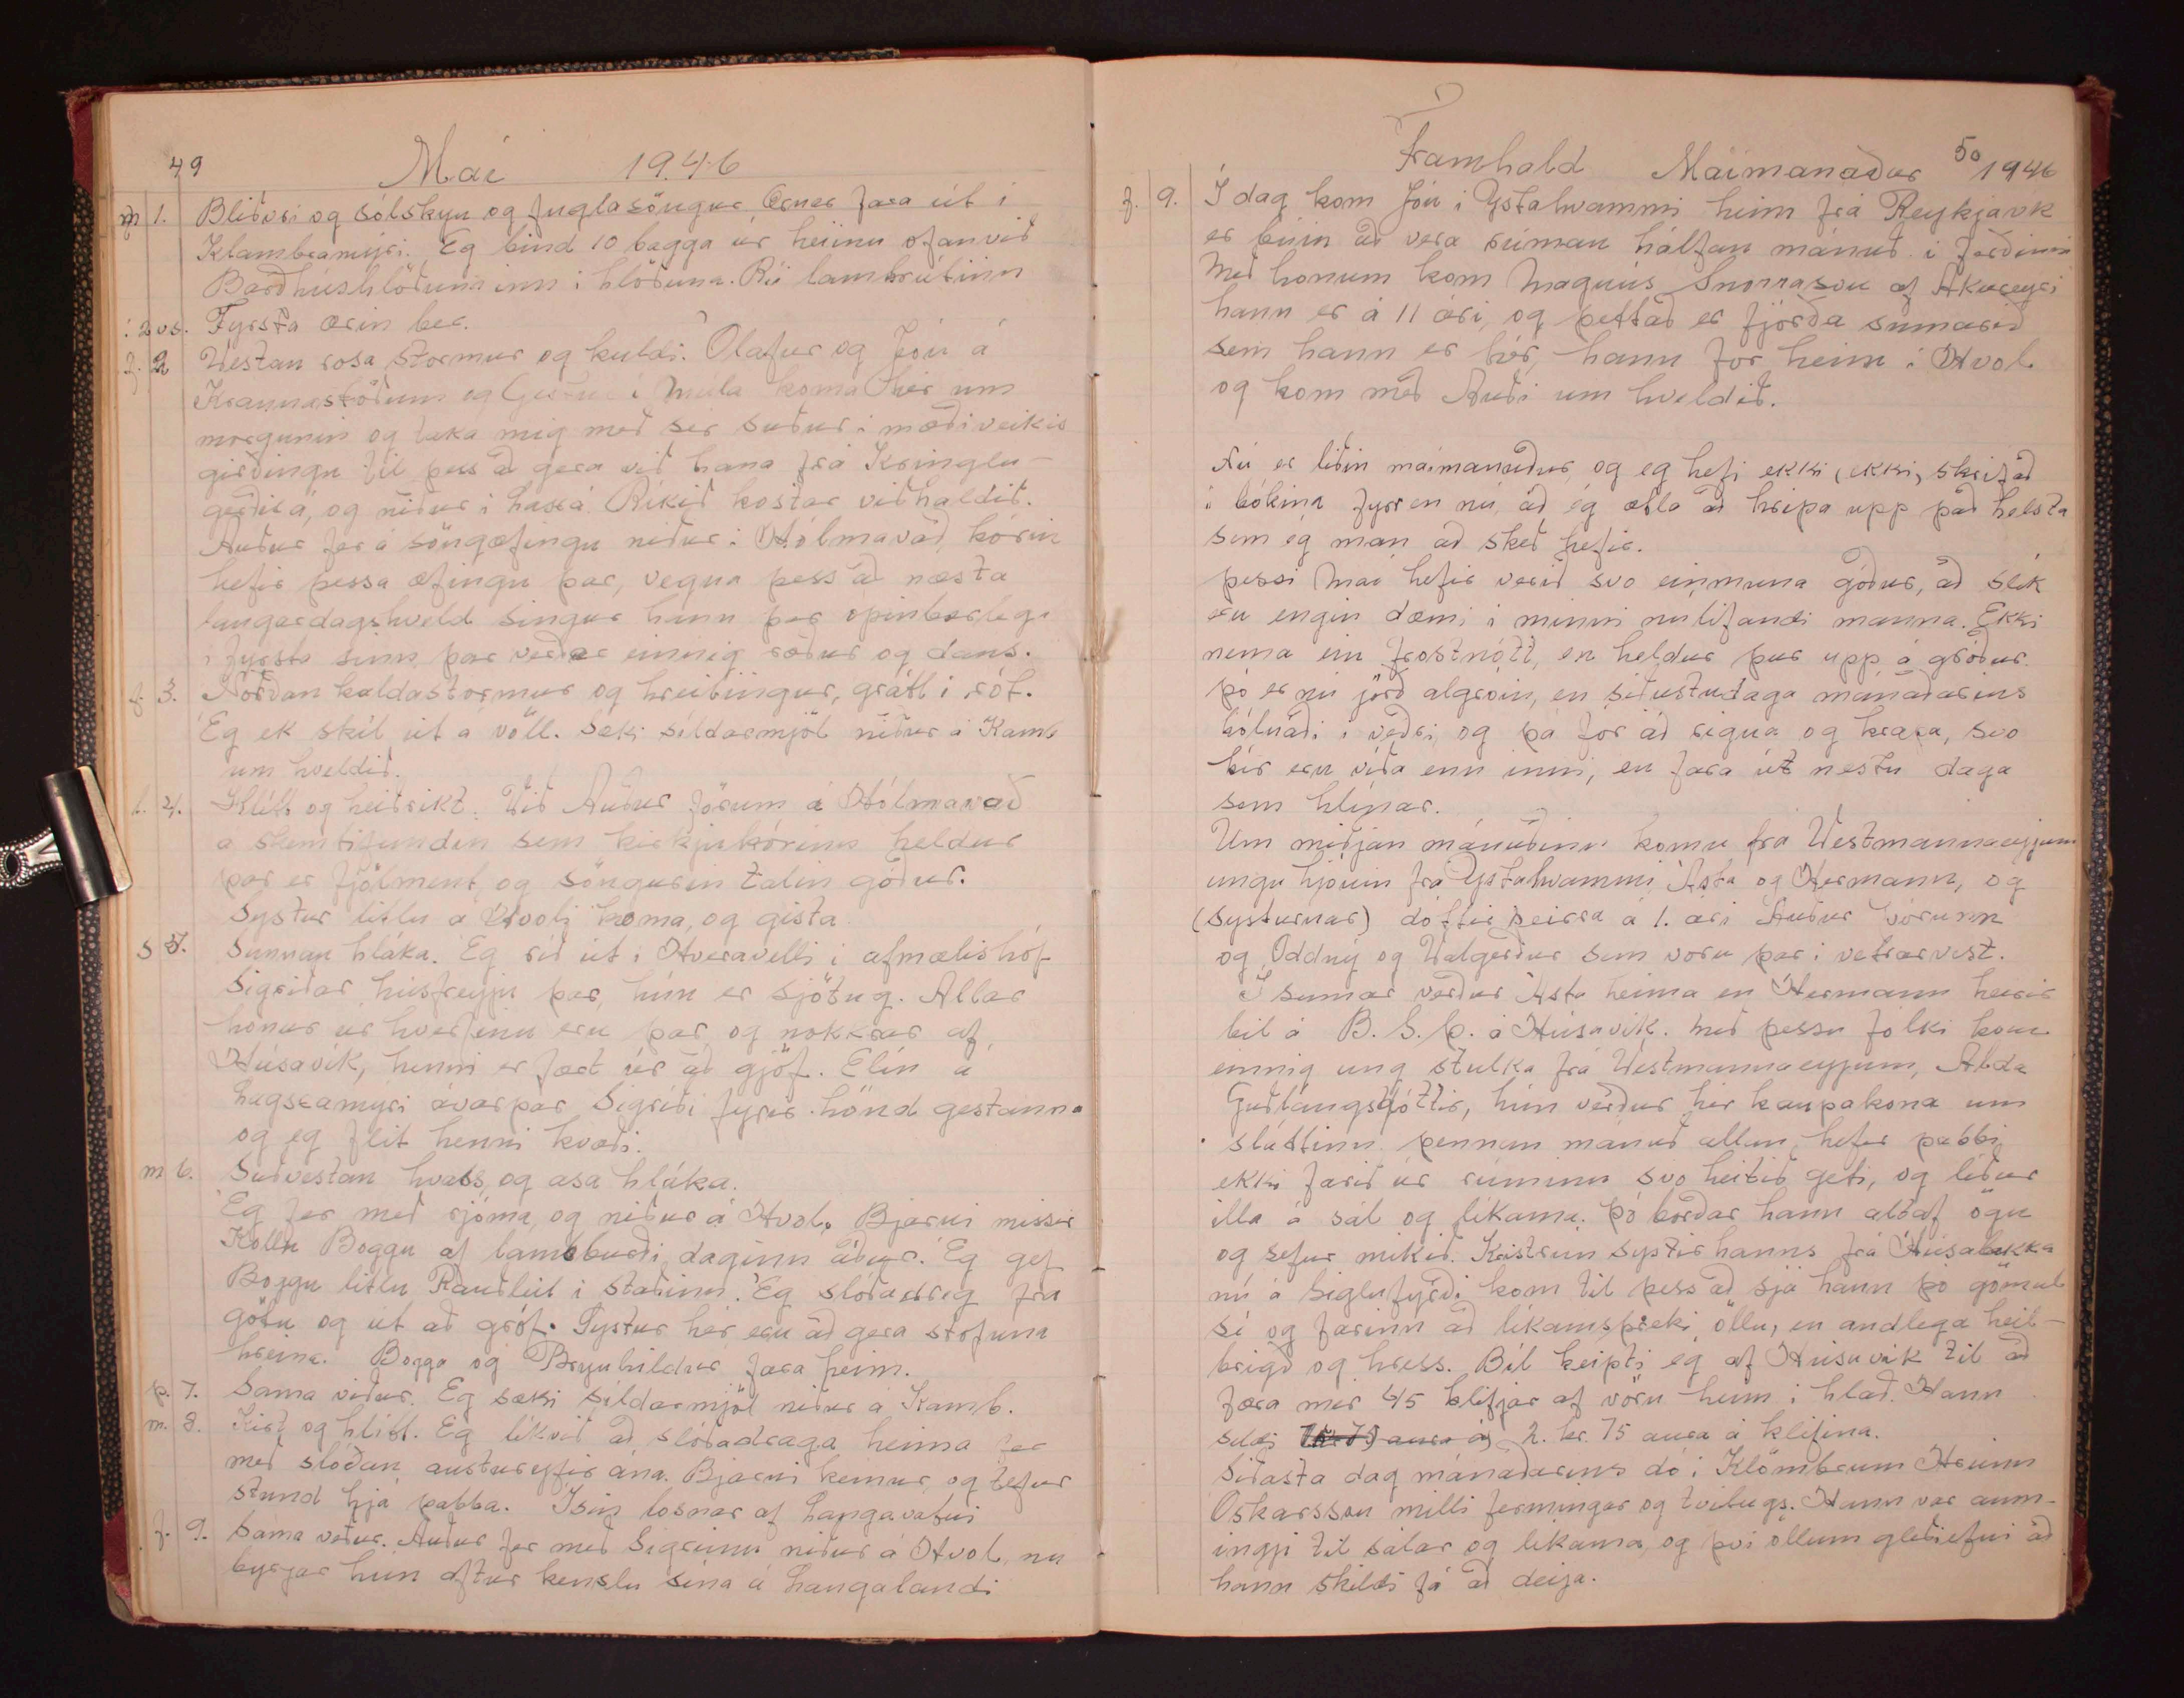 49
Maí 1946
m 1. Bliðvri og sólskyn og fuglasöngur Ærner fara út i
Klambramýri. Eg bind 10 bagga úr heiinu ofanvið
Barðhúshlöðuna inn i hlöðuna. Rii lambrútinn
Fyrsta ærin ber.
f. 2 Vestan rosa stormur og kuldi. Ólafur og Jón á
Kraunastöðum og Gestur i Múla koma hér um
morgunin og taka mig með sér suður i mæðiveikis
girðingu til þess að gera við hana frá Kringlu-
gerðirá, og niður i Laxá. Ríkið kostar viðhaldið.
Auður fer á söngæfingu niður i Hólmavað, kórin
hefir þessa æfingu þar, vegna þess að næsta
laugardagshveld singur hann þar opinberlega
i fyrsta sinn þar verðer einnig ræður og dans.
f. 3. Norðan kuldastormur og hreitingur, grátt i rót.
Eg ek skít út á völl. Sæki síldarmjöl niður á Kamb
um hveldið.
l. 4. Hlítt og heiðrikt. Við Auður förum á Hólmavað
a skemtifundin sem kirkjukórinn heldur
þar er fjölment og söngurin talin góður.
Systur litlu á Hvoli koma, og gista
s 5. Sunnan hláka. Eg rið út i Hveravelli i afmælishóf
Sigriðar húsfreyju þar, hún er sjötug. Allar
konur úr hverfinu eru þar og nokkrar af
Húsavík, henni er fært úr að gjöf. Elín á
Lagseamýri ávarpar Sigriði fyrir hönd gestanna
og eg flit henni kvæði.
m 6. Suðvestan hvass og asa hláka.
Eg fer með rjóma, og niður á Hvol. Bjarni missir
Kollu Boggu af lambburði daginn áður. Eg gef
Boggu litlu Rauðleit i staðinn. Eg slóðadreg frá
götu og út að gróf. Systur hér eru að gera stofuna
hreina. Bogga og Brynhildur fara heim.
þ. 7. Sama viður. Eg sæki síldarmjöl niður á Kamb.
m. 8. Kirt og hlítt. Eg líkvið að slóðadraga heima fer
með slóðan austuryfir ána. Bjarni kemur, og tefur
stund hjá pabba. Isin losnar af Langavatni
f. 9. Sama veður. Auður fer með Sigriinu niður á Hvol, nu
byrjar hún aftur kenslu sína á Langalandi
Framhald Maimanaður 50 1946
f. 9. Í dag kom Jón i Ystahvammi heim frá Reykjavík
er búin að vera rúman hálfan mánuð i ferðinni
Með honum kom Magnús Snorrason af Akureyri
hann er á 11 ári, og þettað er fjórða sumarið
sem hann er hér, hann for heim i Hvol
og kom með Auði um hveldið.
Nú er liðin maimanuður, og eg hefi ekki, ekki, skrifað
i bókina fyrr en nú, að ég ætla að hripa upp það helsta
sem ég man að skeð hefir.
þessi Maí hefir verið svo einmuna góður, að slík
eru engin dæmi i minni nulifandi manna. Ekki
nema ein frostnótt, en heldur þur upp á gróður.
þó er nú jörð algróin, en síðustudaga mánaðarins
kólnaði i veðri og þá fór að rigna og krapa, svo
kír eru víða enn inni, en fara út nestu daga
sem hlínar.
Um miðjan mánuðinn komu frá Vestmannaeyjum
ungu hjónin frá Ystahvammi Ásta og Hermann, og
(systurnar) dóttir þeirra á 1. ári Auður Þórunn
og Oddný og Valgerður sem voru þar i vetrarvist.
Í sumar verður Ásta heima en Hermann keirir
bil á B. S. Þ. á Húsavík. Með þessu fólki kom
einnig ung stulka frá Vestmannaeyjum, Alda
Guðlangsdóttir, hún verður hér kaupakona um
sláttinn. þennan mánuð allan, hefur pabbi
ekki farið úr rúminu svo heitið geti, og líður
illa á sál og líkama. þó borðar hann altaf ögn
og sefur mikið. Kristrún systir hanns frá Húsabakka
nú á Siglufyrði kom til þess að sjá hann þó gömul
sé og farinn að líkamsþreki öllu, en andlega heil-
brigð og hress. Bíl keipti eg af Húsavík til að
færa mer 45 klifjar af vöru heim i hlað. Hann
seldi 2. kr. 75 aura á klifina.
Siðasta dag mánaðarins dó i Klömbrum Hreinn
Óskarsson milli fermingar og tvítugs. Hann var aum-
ingji til sálar og líkama, og því öllum gleðiefni að
hann skildi fá að deija.